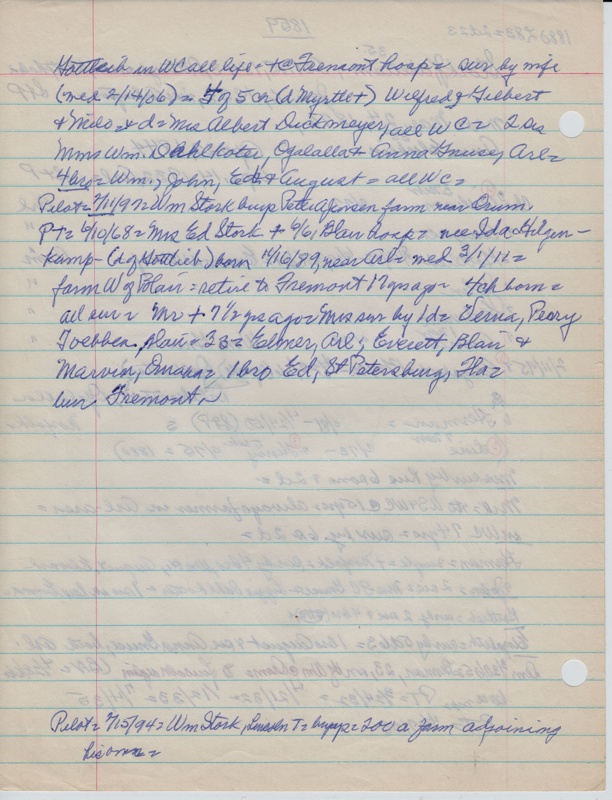 1859
Gottlieb in WC all life = + @ Fremont hosp = sur by wife
(med 2/14/06) = 4 of 5 ch (d Myrtle +) Wilfred & Gilbert
& Milo = & d = Mrs Albert Dickmeyer, all WC = 2 sis
Mmes Wm. Dahlkotter, Ogalalla & Anna Gruse, Arl =
4 bro = Wm., John, Ed & August = all WC =
Pilot = 7/11/97 = Wm Stork buys Peter Jensen farm near Orum
PT = 6/10/68 = Mrs Ed Stork + 6/6, Blair hosp = nee Ida Hilgen-
kamp - (d of Gottlieb) born 11/16/89, near Arl = med 3/1/11 =
farm W of Blair = retire to Fremont 17 yrs ago = 4 ch born =
all sur = Mr + 7 1/2 yrs ago = Mrs sur by 1 d = Verna, Percy
Goebben, Blair = 3 s = Elmer, Arl, Everett, Blair &
Marvin, Omaha = 1 bro Ed, St Petersburg, Fla =
bur Fremont
Pilot = 2/15/94 = Wm Stork, Lincoln T = buys = 200 a farm adjoining
his own =